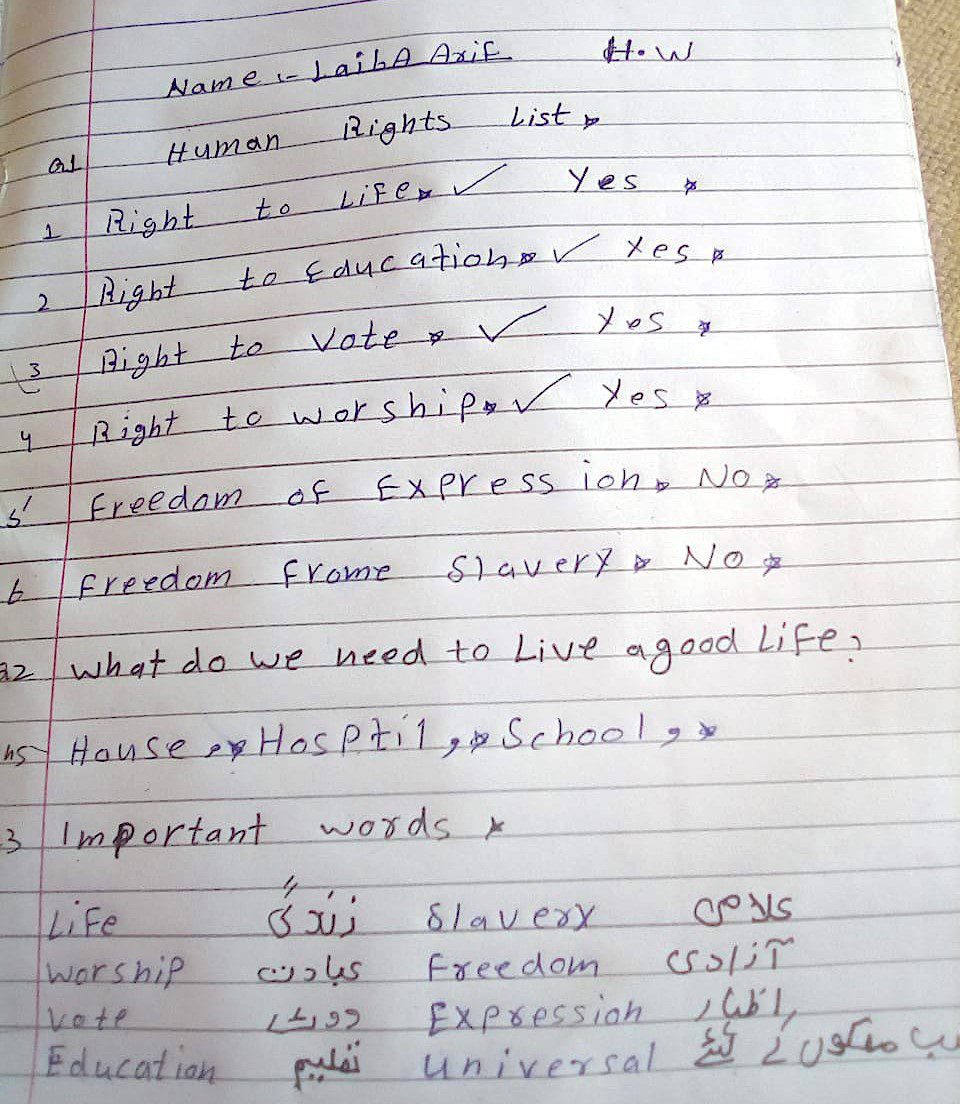 Name :- LaibA Arif H.W
Q1 Human Rights List
1 Right to Life ✓ Yes
2 Right to Education ✓ Yes
3 Right to Vote ✓ Yes
4 Right to worship ✓ Yes
5 Freedom of Expression No
6 Freedom Frome Slavery No
Q2 What do we need to Live a good Life?
House, Hosptil, School,
3 Important words
Life زندگی Slavery
Worship عبادت Freedom آزادی
Vote Expression اظہار
Education تعلیم Universal